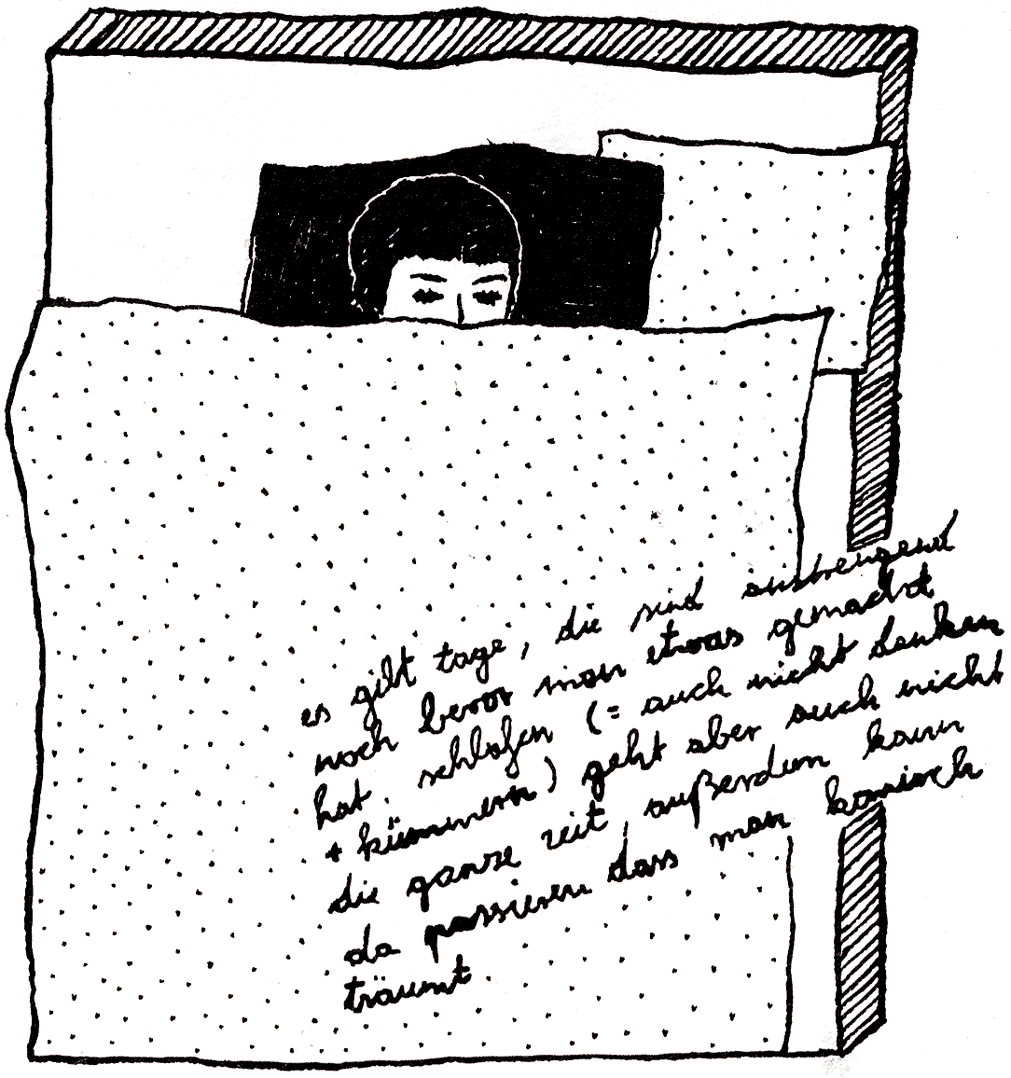 es gibt tage, die sind anstrengend
noch bevor man etwas gemacht
hat. schlafen (= auch nicht denken
+ kümmern) geht aber auch nicht
die ganze zeit, außerdem kann
da passieren dass man komisch
träumt